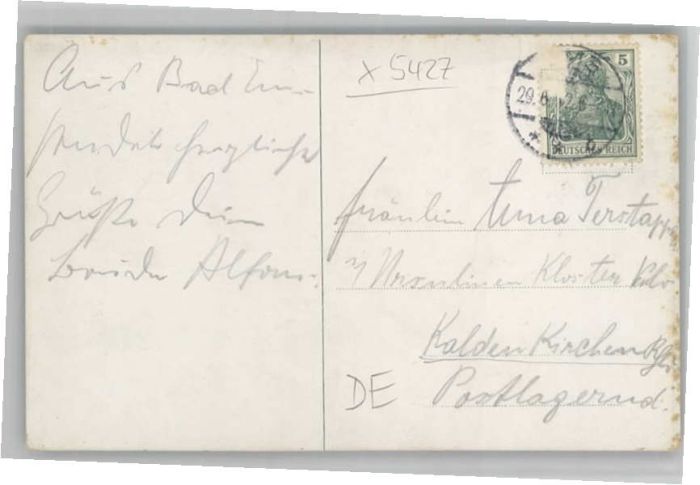 Aus Bad Em-
sendet herzliche
Grüße Dein
Bruder Alfons.
x 5427
29.6
5
DEUTSCHES REICH
Fräulein Anna Terstappen
Ursulinen Kloster
Kaldenkirchen Rhl.
Postlagernd.
DE